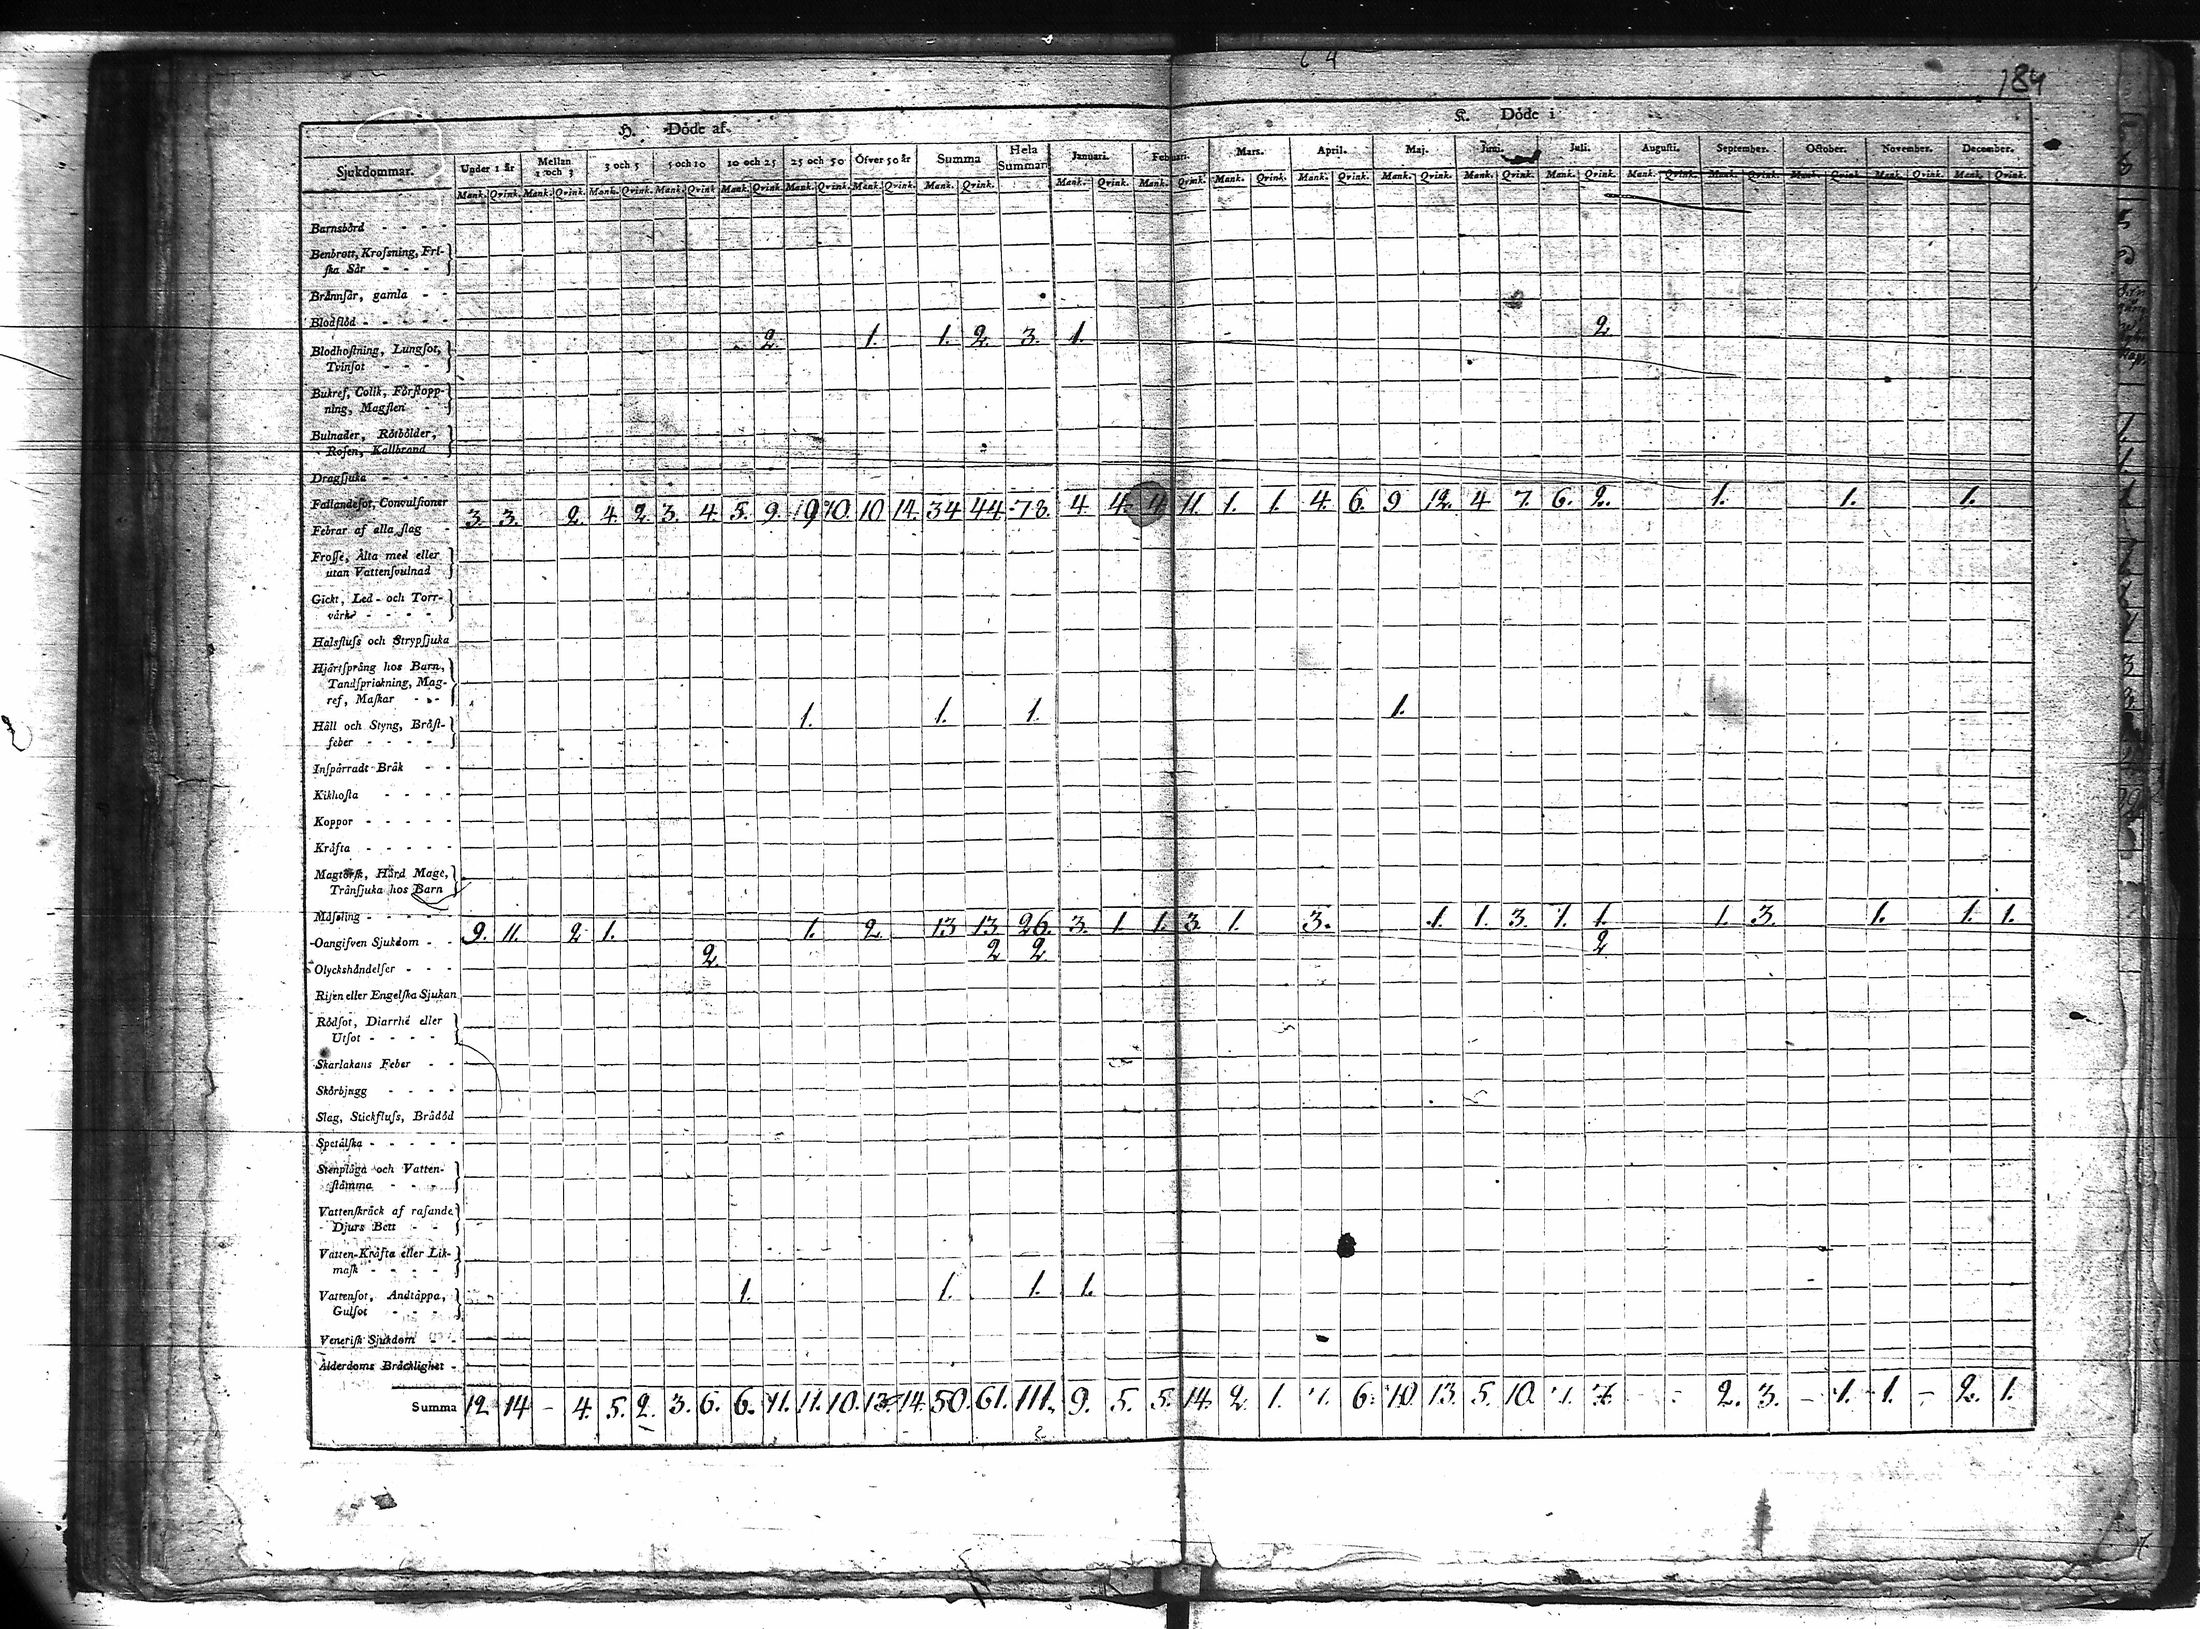 184
H. Döde af.
K. Döde i
Sjukdommar. Under 1 år Mellan 1 och 3 3 och 5 5 och 10 10 och 25 25 och 50 Öfver 50 år Summa Hela Summan Januari. Februari. Mars. April. Maj. Juni. Juli. Augusti. September. October. November. December.
Mank. Qvink. Mank. Qvink. Mank. Qvink. Mank. Qvink. Mank. Qvink. Mank. Qvink. Mank. Qvink. Mank. Qvink. Mank. Qvink. Mank. Qvink. Mank. Qvink. Mank. Qvink. Mank. Qvink. Mank. Qvink. Mank. Qvink. Mank. Qvink. Mank. Qvink. Mank. Qvink. Mank. Qvink. Mank. Qvink.
Barnsbörd - - - -
Benbrott, Kroſsning, Fri-
ſka Sår - - -
Brännſår, gamla - -
Blodflöd - - - - -
2. 1. 1. 2. 3. 1. 2.
Blodhoſtning, Lungſot,
Tvinſot - - - -
Bukref, Colik, Förſtopp-
ning, Magſten - -
Bulnader, Rötbölder,
Roſen, Kallbrand
Dragſjuka - - - -
Fallandeſot, Convulſioner
3. 3. 2. 4. 2. 3. 4. 5. 9. 9 10. 10. 14. 34 44 78. 4 4. 4. 11. 1. 1. 4. 6. 9 12. 4 7. 6. 2. 1. 1. 1.
Febrar af alla ſlag -
Froſſe, Älta med eller
utan Vattenſvulnad
Gickt, Led- och Torr-
värk - - - -
Halsfluſs och Strypſjuka
Hjärtſpräng hos Barn,
Tandſprickning, Mag-
ref, Maſkar - - -
1. 1. 1. 1.
Håll och Styng, Bröſt-
feber - - - -
Inſpärradt Bråk - -
Kikhoſta - - - -
Koppor - - - - -
Kräfta - - - - -
Magtörſk, Hård Mage,
Tränſjuka hos Barn
Mäſsling - - - - -
9. 11. 2 1. 1. 2. 13 13 26. 3. 1. 1. 3. 1. 3. 1. 1. 3. 1. 1. 1. 3. 1. 1. 1.
Oangifven Sjukdom - -
2. 2 2 2
Olyckshändelſer - - -
Riſen eller Engelſka Sjukan
Rödſot, Diarrhé eller
Utſot - - - -
Skarlakans Feber - -
Skörbjugg - - - -
Slag, Stickfluſs, Brådöd
Spetälſka - - - - -
Stenplåga och Vatten-
ſtämma - - -
Vattenſkräck af raſande
Djurs Bett - -
Vatten-Kräfta eller Lik-
maſk - - - -
1. 1. 1. 1.
Vattenſot, Andtäppa,
Gulſot - - -
Veneriſk Sjukdom - -
Ålderdoms Bräcklighet -
Summa 12. 14 - 4. 5. 2. 3. 6. 6. 11. 11. 10. 13. 14. 50. 61. 111. 9. 5. 5. 14. 2. 1. 6. 10. 13. 5. 10. - - 2. 3. - 1. 1. - 2. 1.